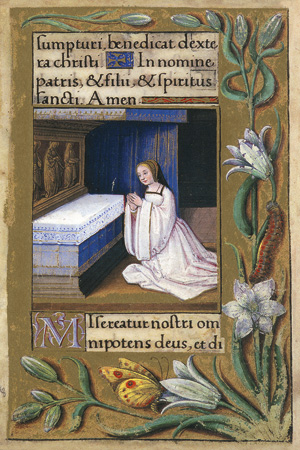 sumpturi, benedicat dexte
ra christi In nomine
patris, & filii, & spiritus
sancti. Amen
Misereatur nostri om
nipotens deus, et di